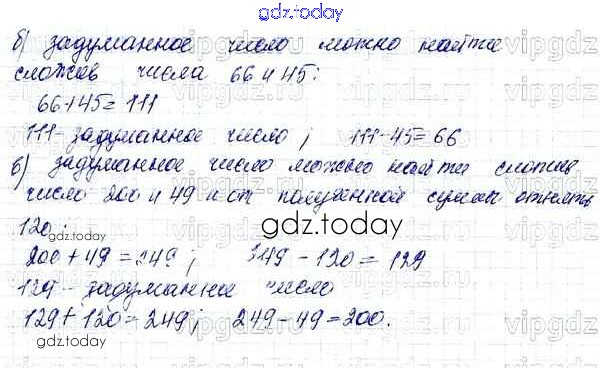 gdz.today
б) задуманное число можно найти
сложив числа 66 и 45:
66+45=111
111- задуманное число ; 111-45=66
в) задуманное число можно найти сложив
число 200 и 49 и от полученной суммы отнять
120 ;
gdz.today
gdz.today
200 + 49 = 249 ; 249 - 120 = 129
129 - задуманное число
129 + 120 = 249 ; 249 - 49 = 200.
gdz.today